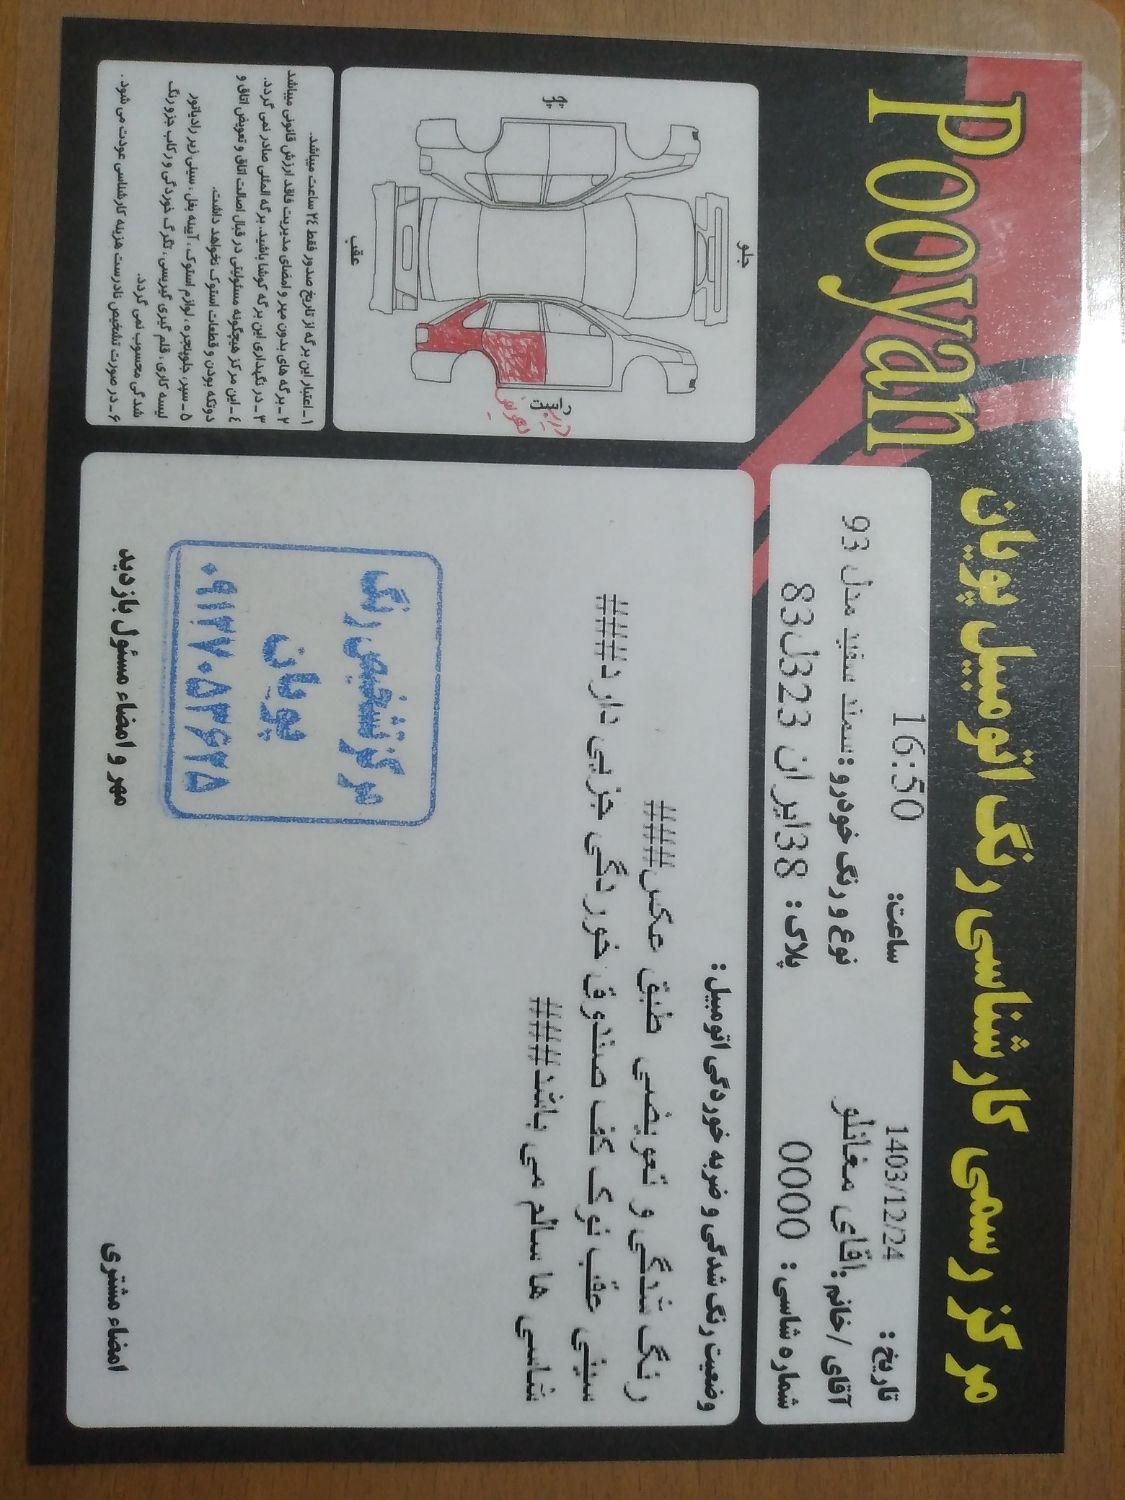 Pooyan
مرکز رسمی کارشناسی رنگ اتومبیل پویان
تاریخ: 1403/12/24
ساعت: 16:50
آقای /خانم: اقای مغانلو
نوع و رنگ خودرو: سمند سفید مدل 93
شماره شاسی: 0000
پلاک: 38ایران 323ل83
وضعیت رنگ شدگی و ضربه خوردگی اتومبیل:
رنگ شدگی و تعویضی طبق عکس###
سینی عقب نوک کف صندوق خوردگی جزیی دارد###
شاسی ها سالم می باشد###
مرکز تشخیص رنگ
پویان
۰۹۱۲۷۰۵۳۶۲۵
مهر و امضاء مسئول بازدید
امضاء مشتری
جلو
عقب
چپ
راست
درب
تعویض
۱ـ اعتبار این برگه از تاریخ صدور فقط ۲٤ ساعت میباشد.
۲ـ برگه های بدون مهر و امضای مدیریت فاقد ارزش قانونی میباشد
۳ـ در نگهداری این برگه کوشا باشید. برگه المثنی صادر نمی گردد.
٤ـ این مرکز هیچگونه مسئولیتی در قبال اصالت اتاق و تعویض اتاق و
دوتکه بودن و قطعات استوک نخواهد داشت.
۵ـ سپر، جلوپنجره، لوازم استوک، آیینه بغل، سینی زیر رادیاتور
لیسه کاری، قلم گیری گیربسی، تگرگ خوردگی و رکاب جزو رنگ
شدگی محسوب نمی گردد.
۶ـ در صورت تشخیص نادرست هزینه کارشناسی عودت می شود.